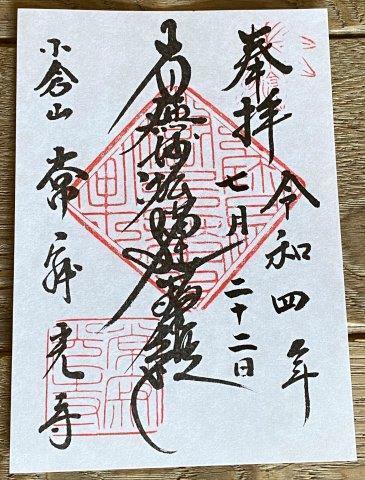 奉拝
令和四年
七月二十二日
南無妙法蓮華経
小倉山 常寂光寺